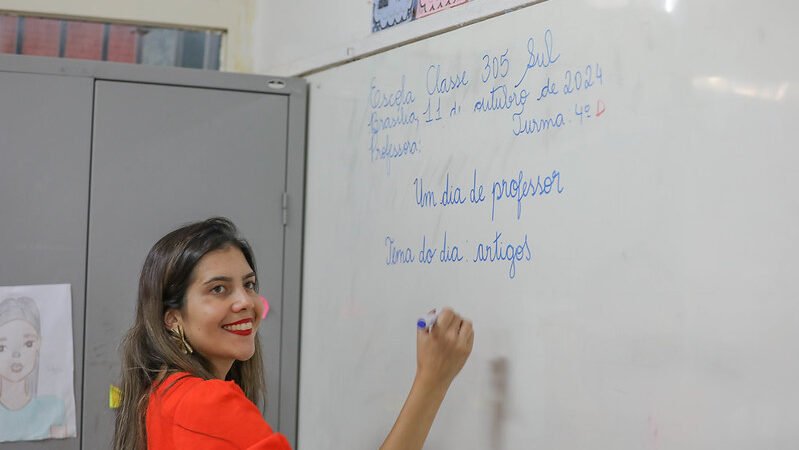 Escola Classe 305 Sul
Brasília, 11 de outubro de 2024
Professora: Turma: 4º D
Um dia de professor
Tema do dia: artigos